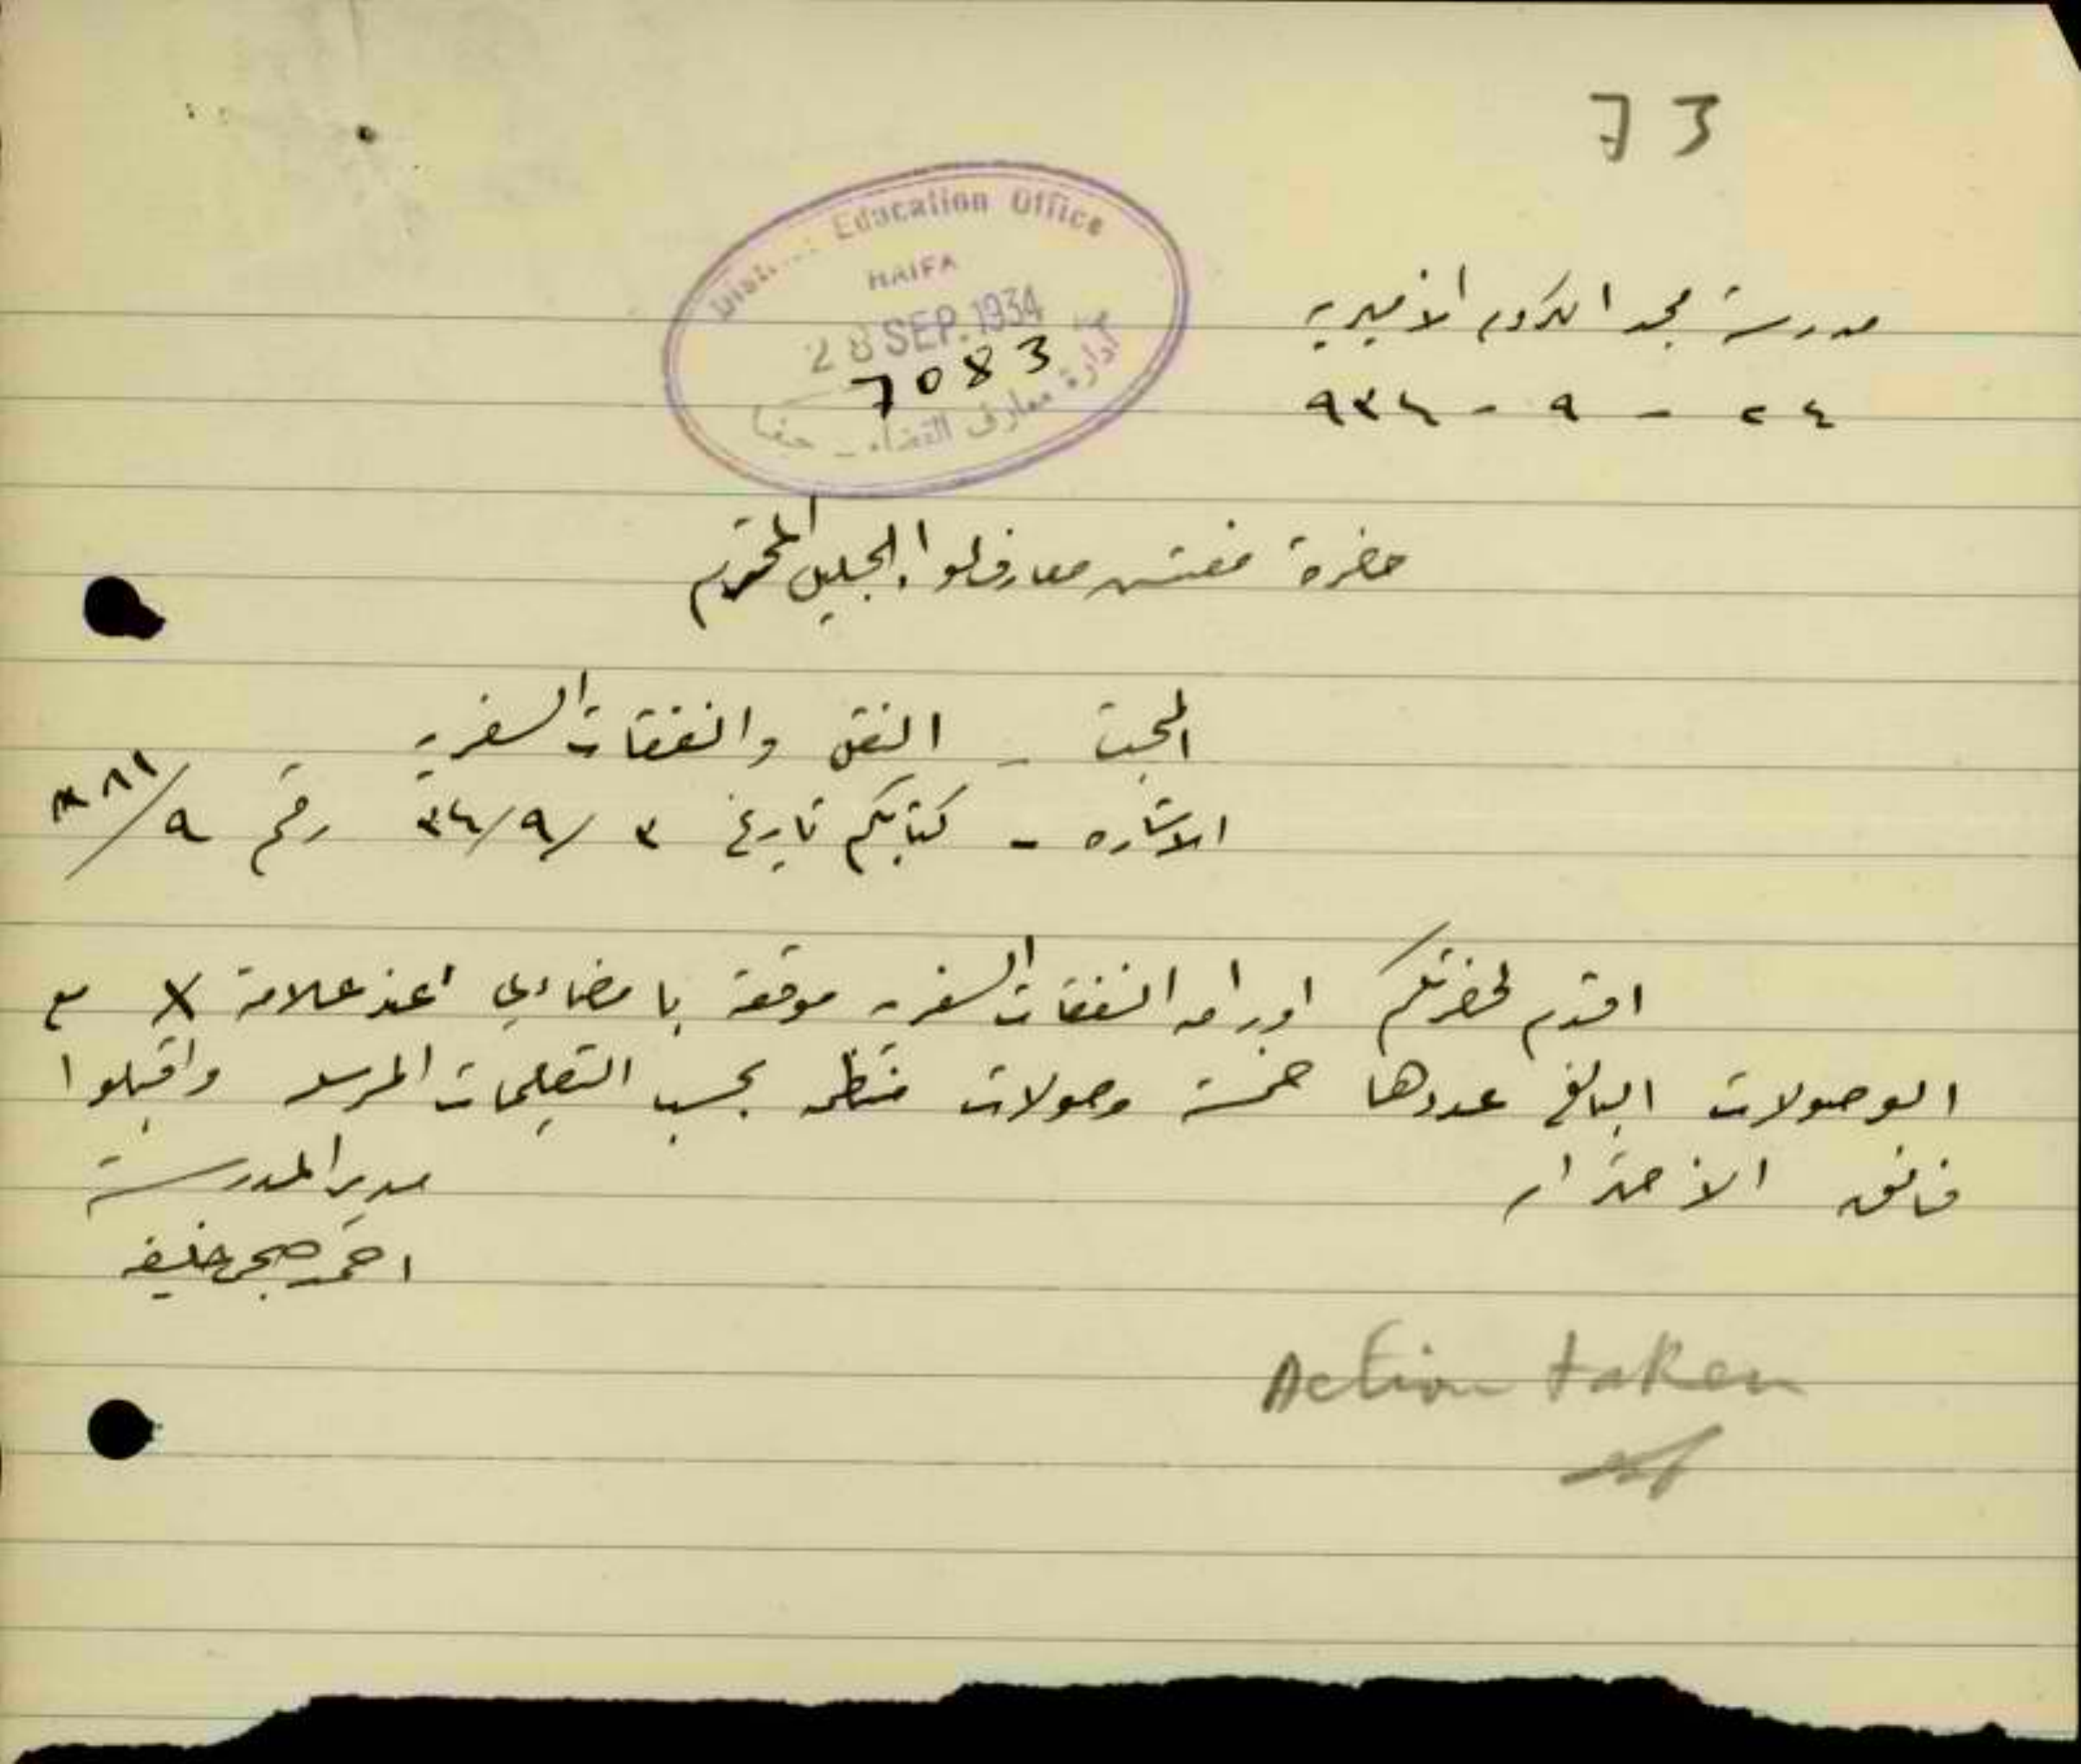 73
District Education Office
HAIFA
28 SEP. 1934
7083
ادارة معارف القضاء - حيفا
مدرسة مجد الكروم الاميرية
٢٤ - ٩ - ٩٣٤
حضرة مفتش معارف لواء الجليل المحترم
المبحث - النقل والنفقات السفرية
الاشاره - كتابكم تاريخ ٣/٩/٣٤ رقم ٩/
اقدم لحضرتكم اوراق النفقات السفريه موقعة بامضاءي عند علامة X مع
الوصولات البالغ عددها خمسة وصولات منظمه بحسب التعليمات المرسله واقبلوا
فائق الاحترام
مدير المدرسة
احمد صبحي خليفه
Action taken